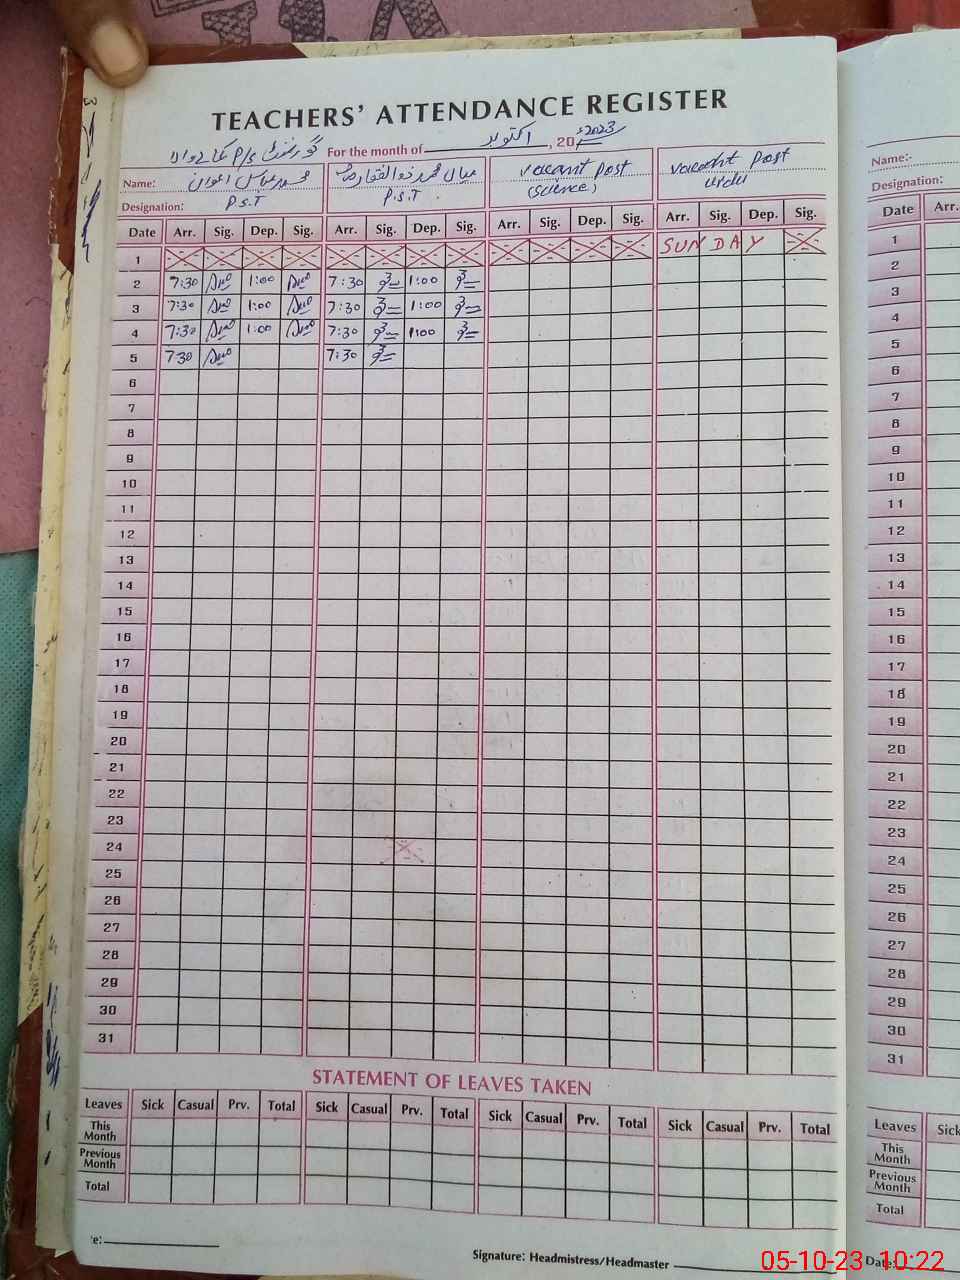 TEACHERS' ATTENDANCE REGISTER
گورنمنٹ P/S
For the month of اکتوبر , 20 2023
Name: محمد عباس اعوان میاں محمد ذوالفقار vacant Post (Science) vacant Post urdu
Designation: P.S.T P.S.T.
Date Arr. Sig. Dep. Sig. Arr. Sig. Dep. Sig. Arr. Sig. Dep. Sig. Arr. Sig. Dep. Sig.
1 SUNDAY
2 7:30 1:00 7:30 1:00
3 7:30 1:00 7:30 1:00
4 7:30 1:00 7:30 1:00
5 7:30 7:30
6
7
8
9
10
11
12
13
14
15
16
17
18
19
20
21
22
23
24
25
26
27
28
29
30
31
STATEMENT OF LEAVES TAKEN
Leaves Sick Casual Prv. Total Sick Casual Prv. Total Sick Casual Prv. Total Sick Casual Prv. Total
This Month
Previous Month
Total
Signature: Headmistress/Headmaster
Name:-
Designation:
Date Arr.
1
2
3
4
5
6
7
8
9
10
11
12
13
14
15
16
17
18
19
20
21
22
23
24
25
26
27
28
29
30
31
Leaves Sick
This Month
Previous Month
Total
Date:
05-10-23 10:22